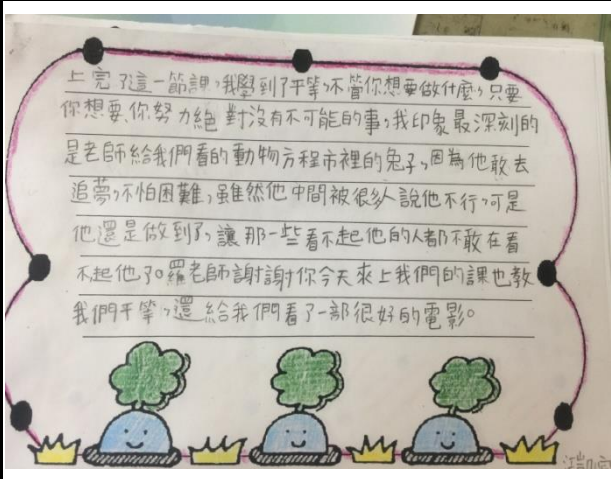 上完了這一節課，我學到了平等，不管你想要做什麼，只要
你想要，你努力絕對沒有不可能的事，我印象最深刻的
是老師給我們看的動物方程市裡的兔子，因為他敢去
追夢，不怕困難，雖然他中間被很多人說他不行，可是
他還是做到了，讓那一些看不起他的人都不敢在看
不起他了。羅老師謝謝你今天來上我們的課也教
我們平等，還給我們看了一部很好的電影。